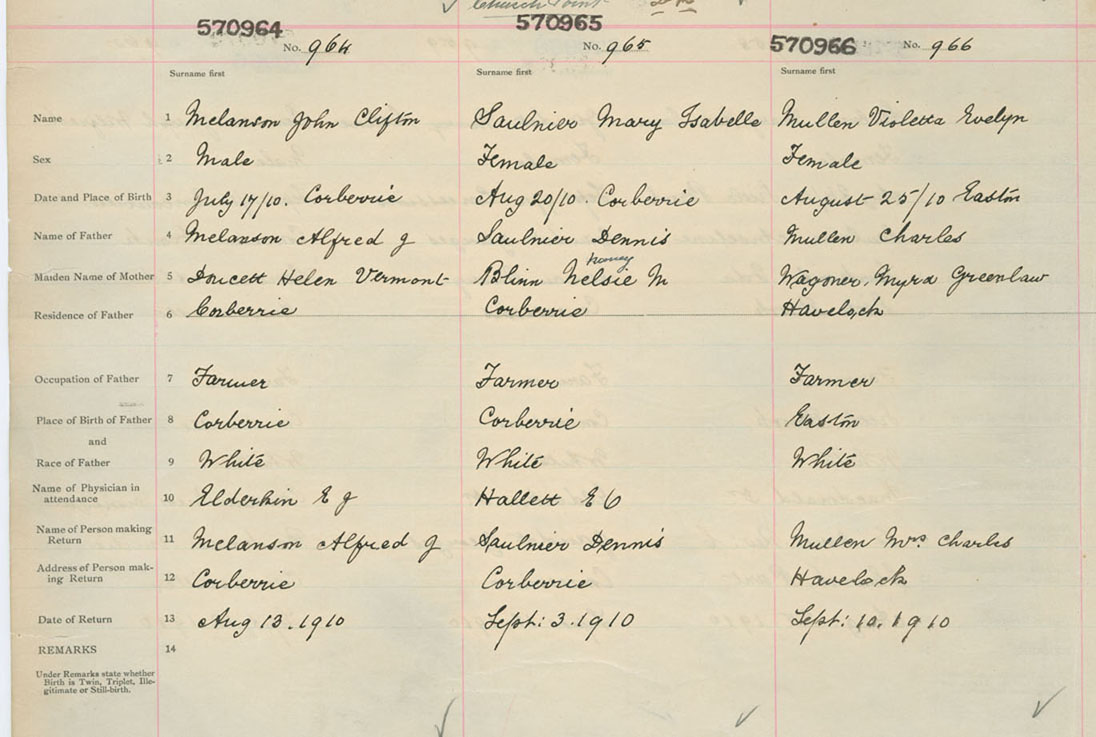 Church Point
570964 570965 570966
No. 964 No. 965 No. 966
Surname first Surname first Surname first
Name 1 Melanson John Clifton Saulnier Mary Isabelle Mullen Violetta Evelyn
Sex 2 Male Female Female
Date and Place of Birth 3 July 17/10. Corberrie Aug 20/10. Corberrie August 25/10 Easton
Name of Father 4 Melanson Alfred J Saulnier Dennis Mullen Charles
Maiden Name of Mother 5 Doucett Helen Vermont Blinn Nelsie M Wagoner, Myra Greenlaw
Residence of Father 6 Corberrie Corberrie Havelock
Occupation of Father 7 Farmer Farmer Farmer
Place of Birth of Father 8 Corberrie Corberrie Easton
and
Race of Father 9 White White White
Name of Physician in
attendance 10 Elderkin E J Hallett E O
Name of Person making
Return 11 Melanson Alfred J Saulnier Dennis Mullen Mrs Charles
Address of Person mak-
ing Return 12 Corberrie Corberrie Havelock
Date of Return 13 Aug 13. 1910 Sept: 3. 1910 Sept: 10. 1910
REMARKS 14
Under Remarks state whether
Birth is Twin, Triplet, Ille-
gitimate or Still-birth.